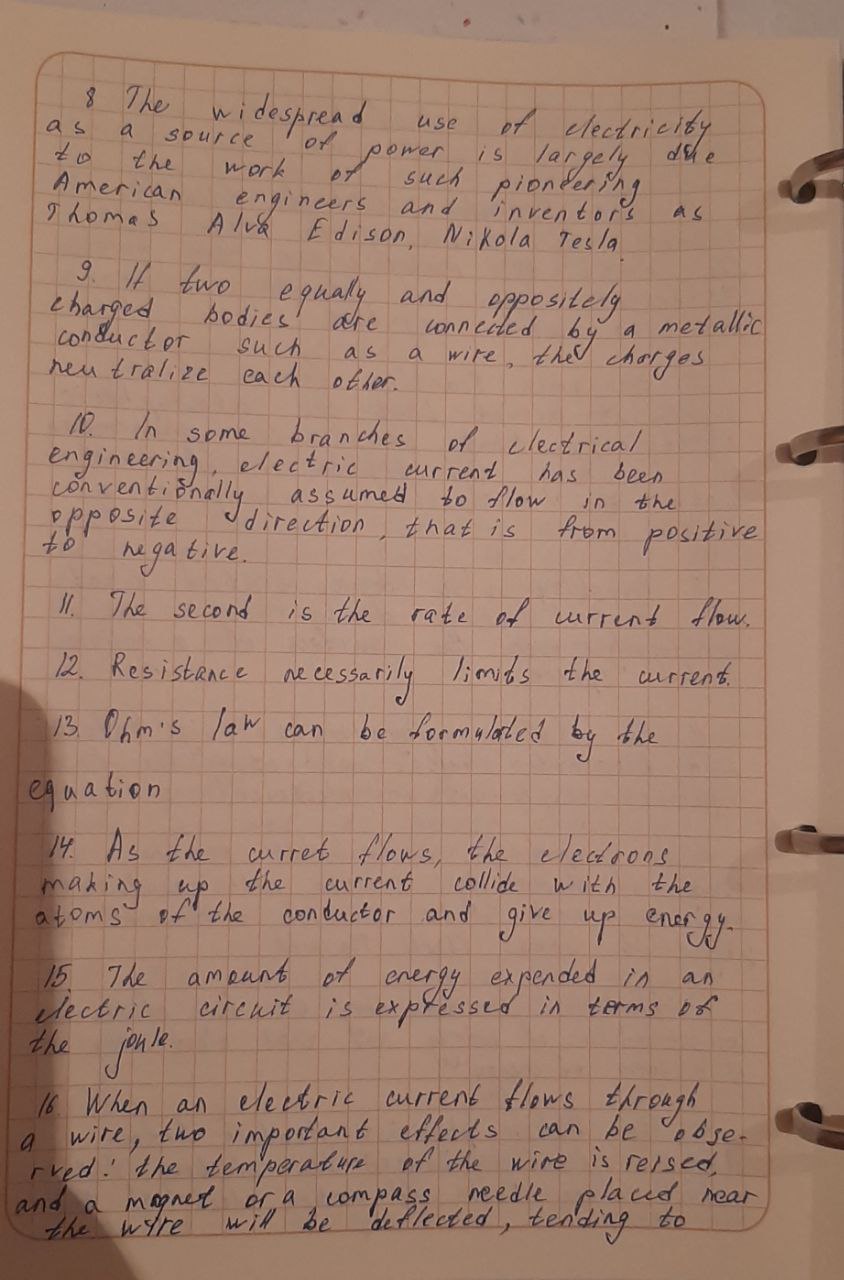 8 The widespread use of electricity
as a source of power is largely due
to the work of such piondering
American engineers and inventors as
Thomas Alva Edison, Nikola Tesla.
9. If two equally and oppositely
charged bodies are connected by a metallic
conductor such as a wire, the charges
neutralize each other.
10. In some branches of electrical
engineering, electric current has been
conventionally assumed to flow in the
opposite direction, that is from positive
to negative.
11. The second is the rate of current flow.
12. Resistance necessarily limits the current.
13. Ohm's law can be formulated by the
equation
14. As the curret flows, the electrons
making up the current collide with the
atoms of the conductor and give up energy.
15. The amount of energy expended in an
electric circuit is expressed in terms of
the joule.
16 When an electric current flows through
a wire, two important effects can be obse-
rved: the temperature of the wire is reised,
and a magnet or a compass needle placed near
the wyre will be deflected, tending to